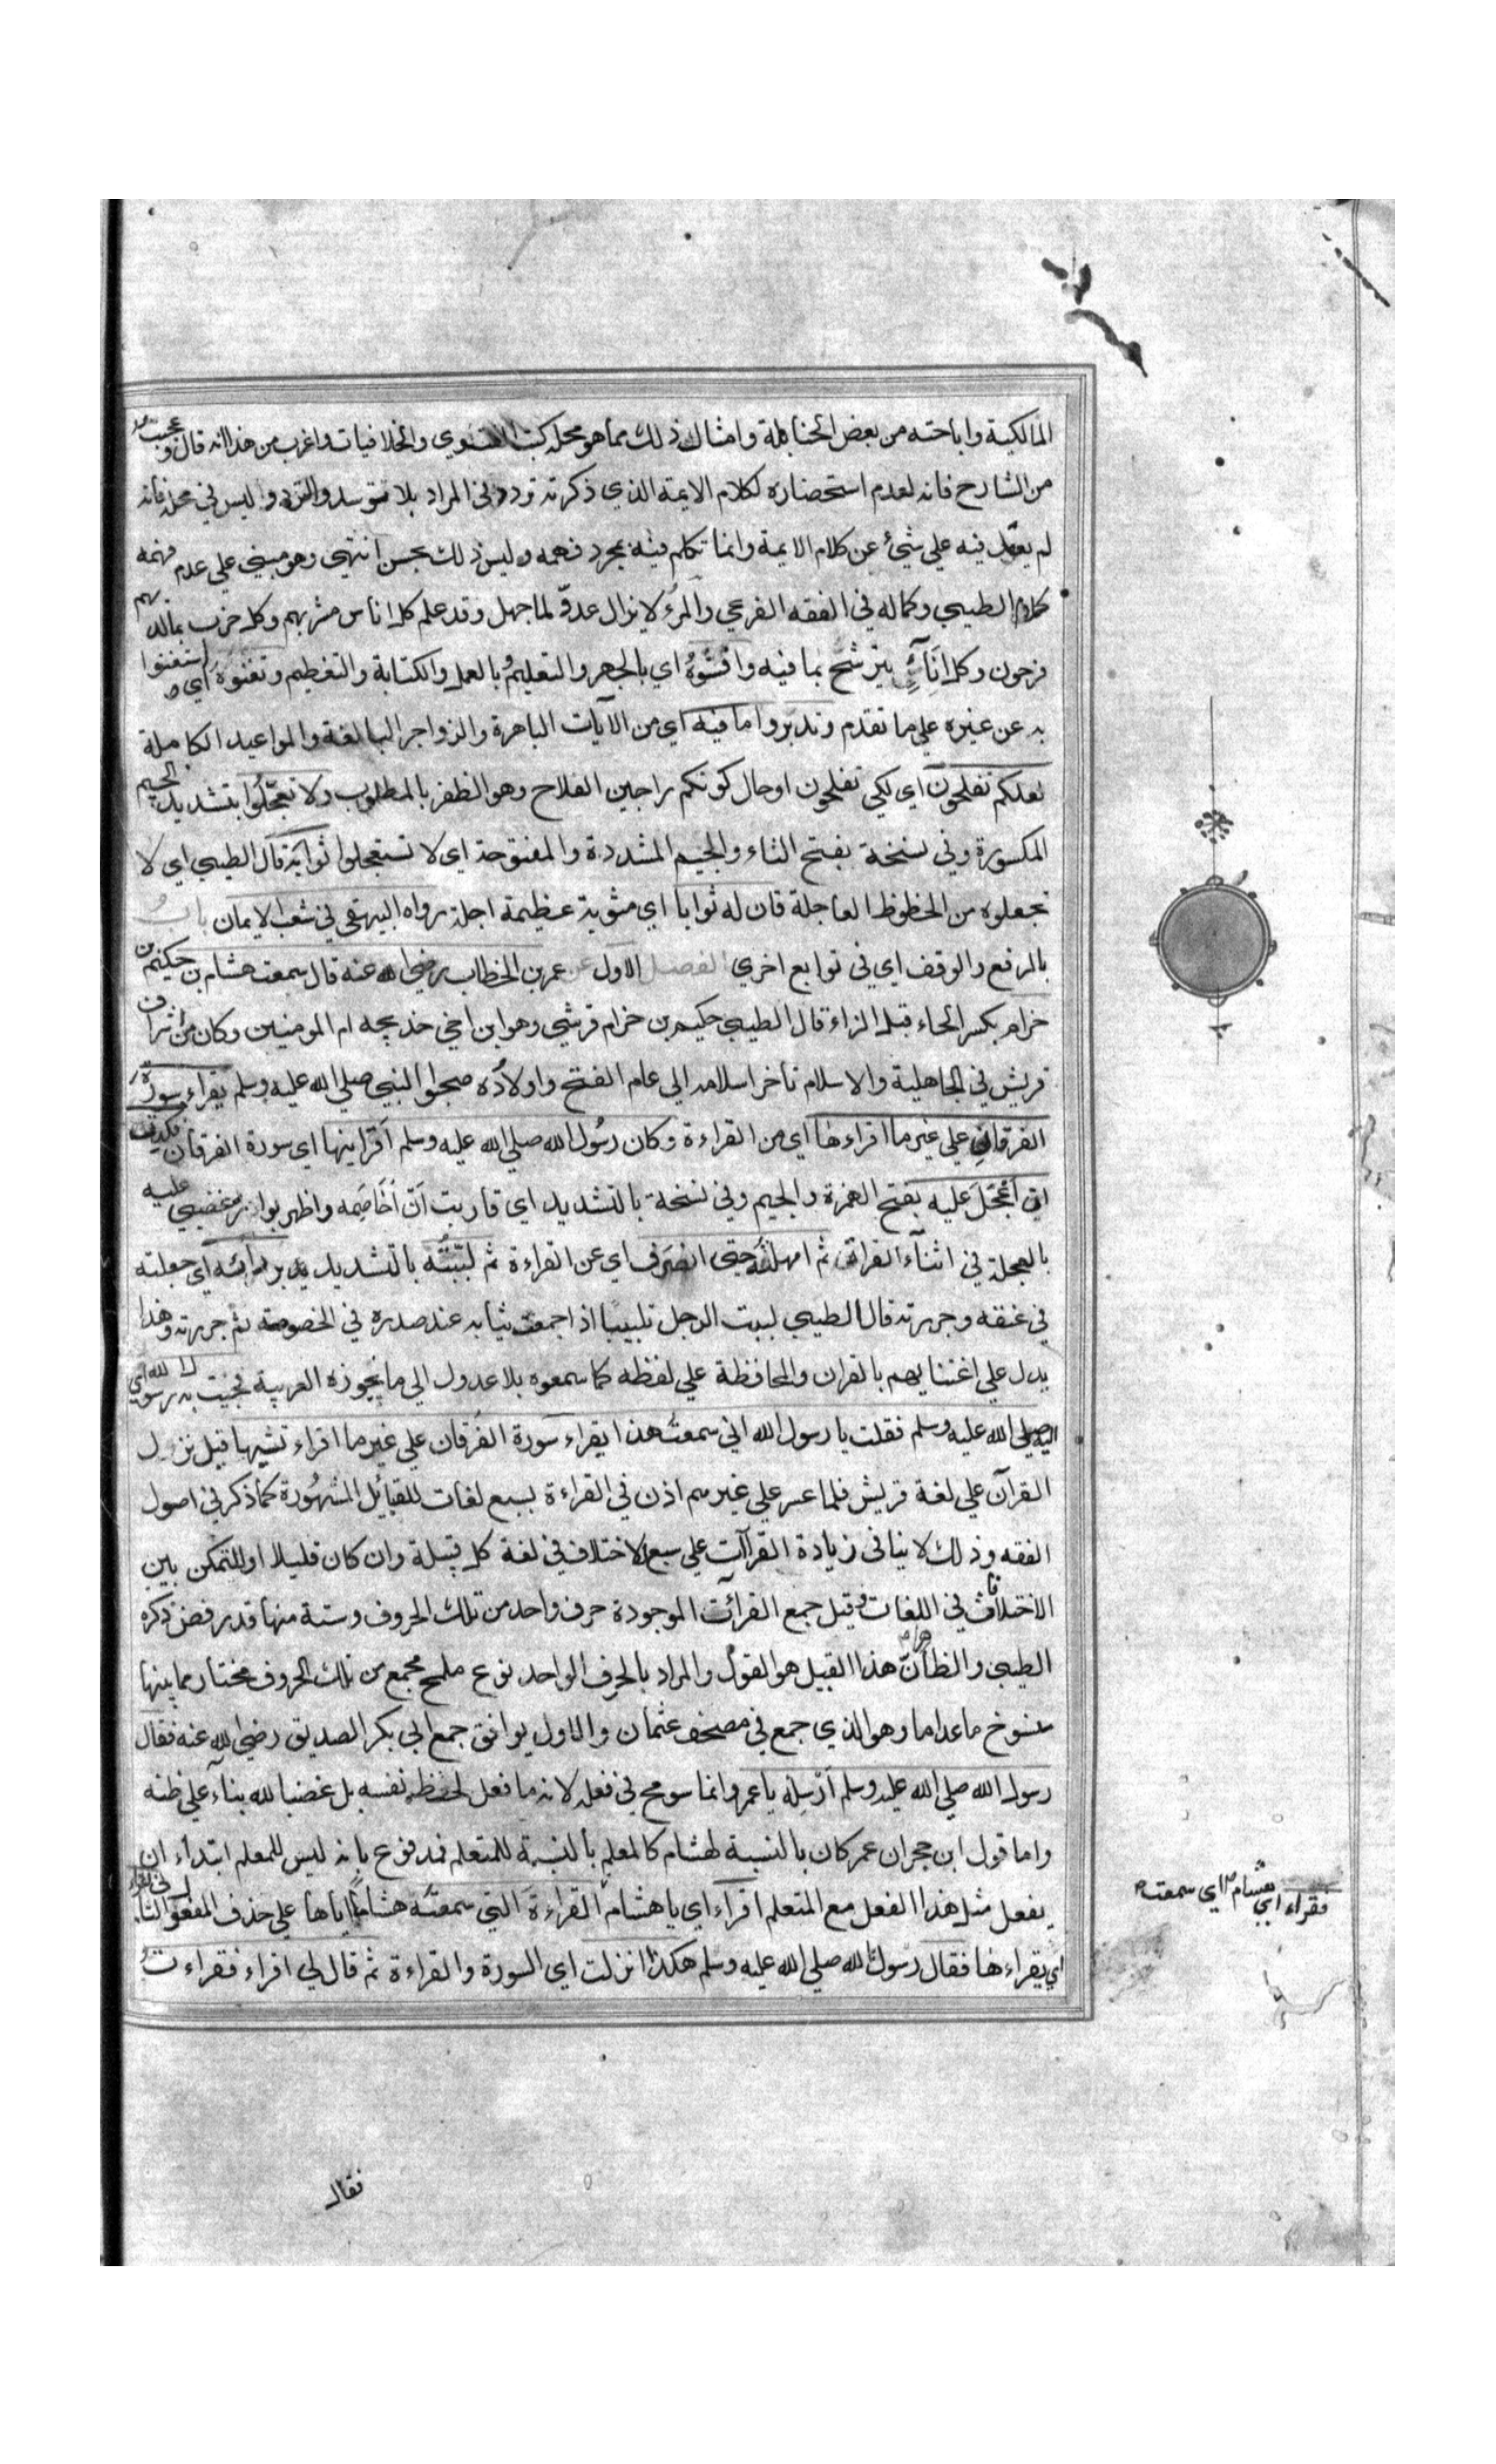 المالكية واباحته من بعض الحنابلة وامثال ذلك مما هو محله كتب الفتوي والخلافيات واغرب من هذا انه قال وعجيب
من الشارح فانه لعدم استحضاره لكلام الايمة الذي ذكرته تردد في المراد بلا توسد والتردد ليس في محله فانه
لم يعول فيه علي شيء عن كلام الايمة وانما تكلم فيه بمجرد فهمه وليس ذلك بحسن انتهي وهو مبني علي عدم فهمه
كلام الطيبي وكماله في الفقه الفرعي والمرء لا يزال عدوّ لما جهل وقد علم كل اناس مشربهم وكل حزب بما لديهم
فرحون وكل اناء يترشح بما فيه وافشوه اي بالجهر والتعليم وبالعمل والكتابة والتعظيم وتغنوه اي استغنوا
به عن غيره علي ما تقدم وتدبروا ما فيه اي من الآيات الباهرة والزواجر البالغة والمواعيد الكاملة
لعلكم تفلحون اي لكي تفلحون او حال كونكم راجين الفلاح وهو الظفر بالمطلوب ولا تعجّلوا بتشديد الجيم
المكسورة وفي نسخة بفتح التاء والجيم المشددة والمفتوحة اي لا تستعجلوا ثوابه قال الطيبي اي لا
تجعلوه من الحظوظ العاجلة فان له ثوابا اي مثوبة عظيمة اجلة رواه البيهقي في شعب الايمان باب
بالرفع والوقف اي في توابع اخري الفصل الاول عن عمر بن الخطاب رضي الله عنه قال سمعت هشام بن حكيم بن
حزام بكسر الحاء قبل الزاء قال الطيبي حكيم بن حزام قرشي وهو ابن اخي خديجه ام المومنين وكان من اشراف
قريش في الجاهلية والاسلام تأخر اسلامه الي عام الفتح واولاده صحبوا النبي صلي الله عليه وسلم يقراء سورة
الفرقان علي غير ما اقراءها اي من القراءة وكان رسول الله صلي الله عليه وسلم اقرانيها اي سورة الفرقان فكدت
ان اعجل عليه بفتح الهمزة والجيم وفي نسخة بالتشديد اي قاربت ان اخاصمه واظهر بوادر غضبي عليه
بالعجلة في اثناء القراة ثم امهلته حتي انصرف اي عن القراءة ثم لببته بالتشديد بردائه اي جعلته
في عنقه وجررته قال الطيبي لببت الرجل تلبيبا اذا جمعت ثيابه عند صدره في الخصومة ثم جررته وهذا
يدل علي اعتنايهم بالقران والمحافظة علي لفظه كما سمعوه بلا عدول الي ما تجوزه العربية فجئت به رسول الله اي
اليه صلي الله عليه وسلم فقلت يا رسول الله اني سمعت هذا يقراء سورة الفرقان علي غير ما اقراء تنيها قيل نزل
القرآن علي لغة قريش فلما عسر علي غيرهم اذن في القراءة بسبع لغات للقبائل المشهورة كما ذكر في اصول
الفقه وذلك لا ينافي زيادة القراآت علي سبع لاختلاف في لغة كل قبيلة وان كان قليلا او للتمكن بين
الاختلاف في اللغات وقيل جمع القرآت الموجودة حرف واحد من تلك الحروف وستة منها قد رفض ذكره
الطيبي والظاهر ان هذا القيل هو القول والمراد بالحرف الواحد نوع ملمح مجمع من تلك الحروف مختار مما بينها
منسوخ ما عداها وهو الذي جمع في مصحف عثمان والاول يوافق جمع ابي بكر الصديق رضي الله عنه فقال
رسول الله صلي الله عليه وسلم ارسله يا عمر وانما سومح في فعله لانه ما فعل لحظ نفسه بل غضبا لله بناء علي ظنه
واما قول ابن حجر ان عمر كان بالنسبة لهشام كالمعلم بالنسبة للمتعلم فمدفوع بانه ليس للمعلم ابتداء ان
يفعل مثل هذا الفعل مع المتعلم اقراء اي يا هشام القراءة التي سمعته هشاما اياها علي حذف المفعول الثاني
اي يقراءها فقال رسول الله صلي الله عليه وسلم هكذا انزلت اي السورة والقراءة ثم قال لي اقراء فقراءت
فقراء اي هشام اي سمعت
فقال